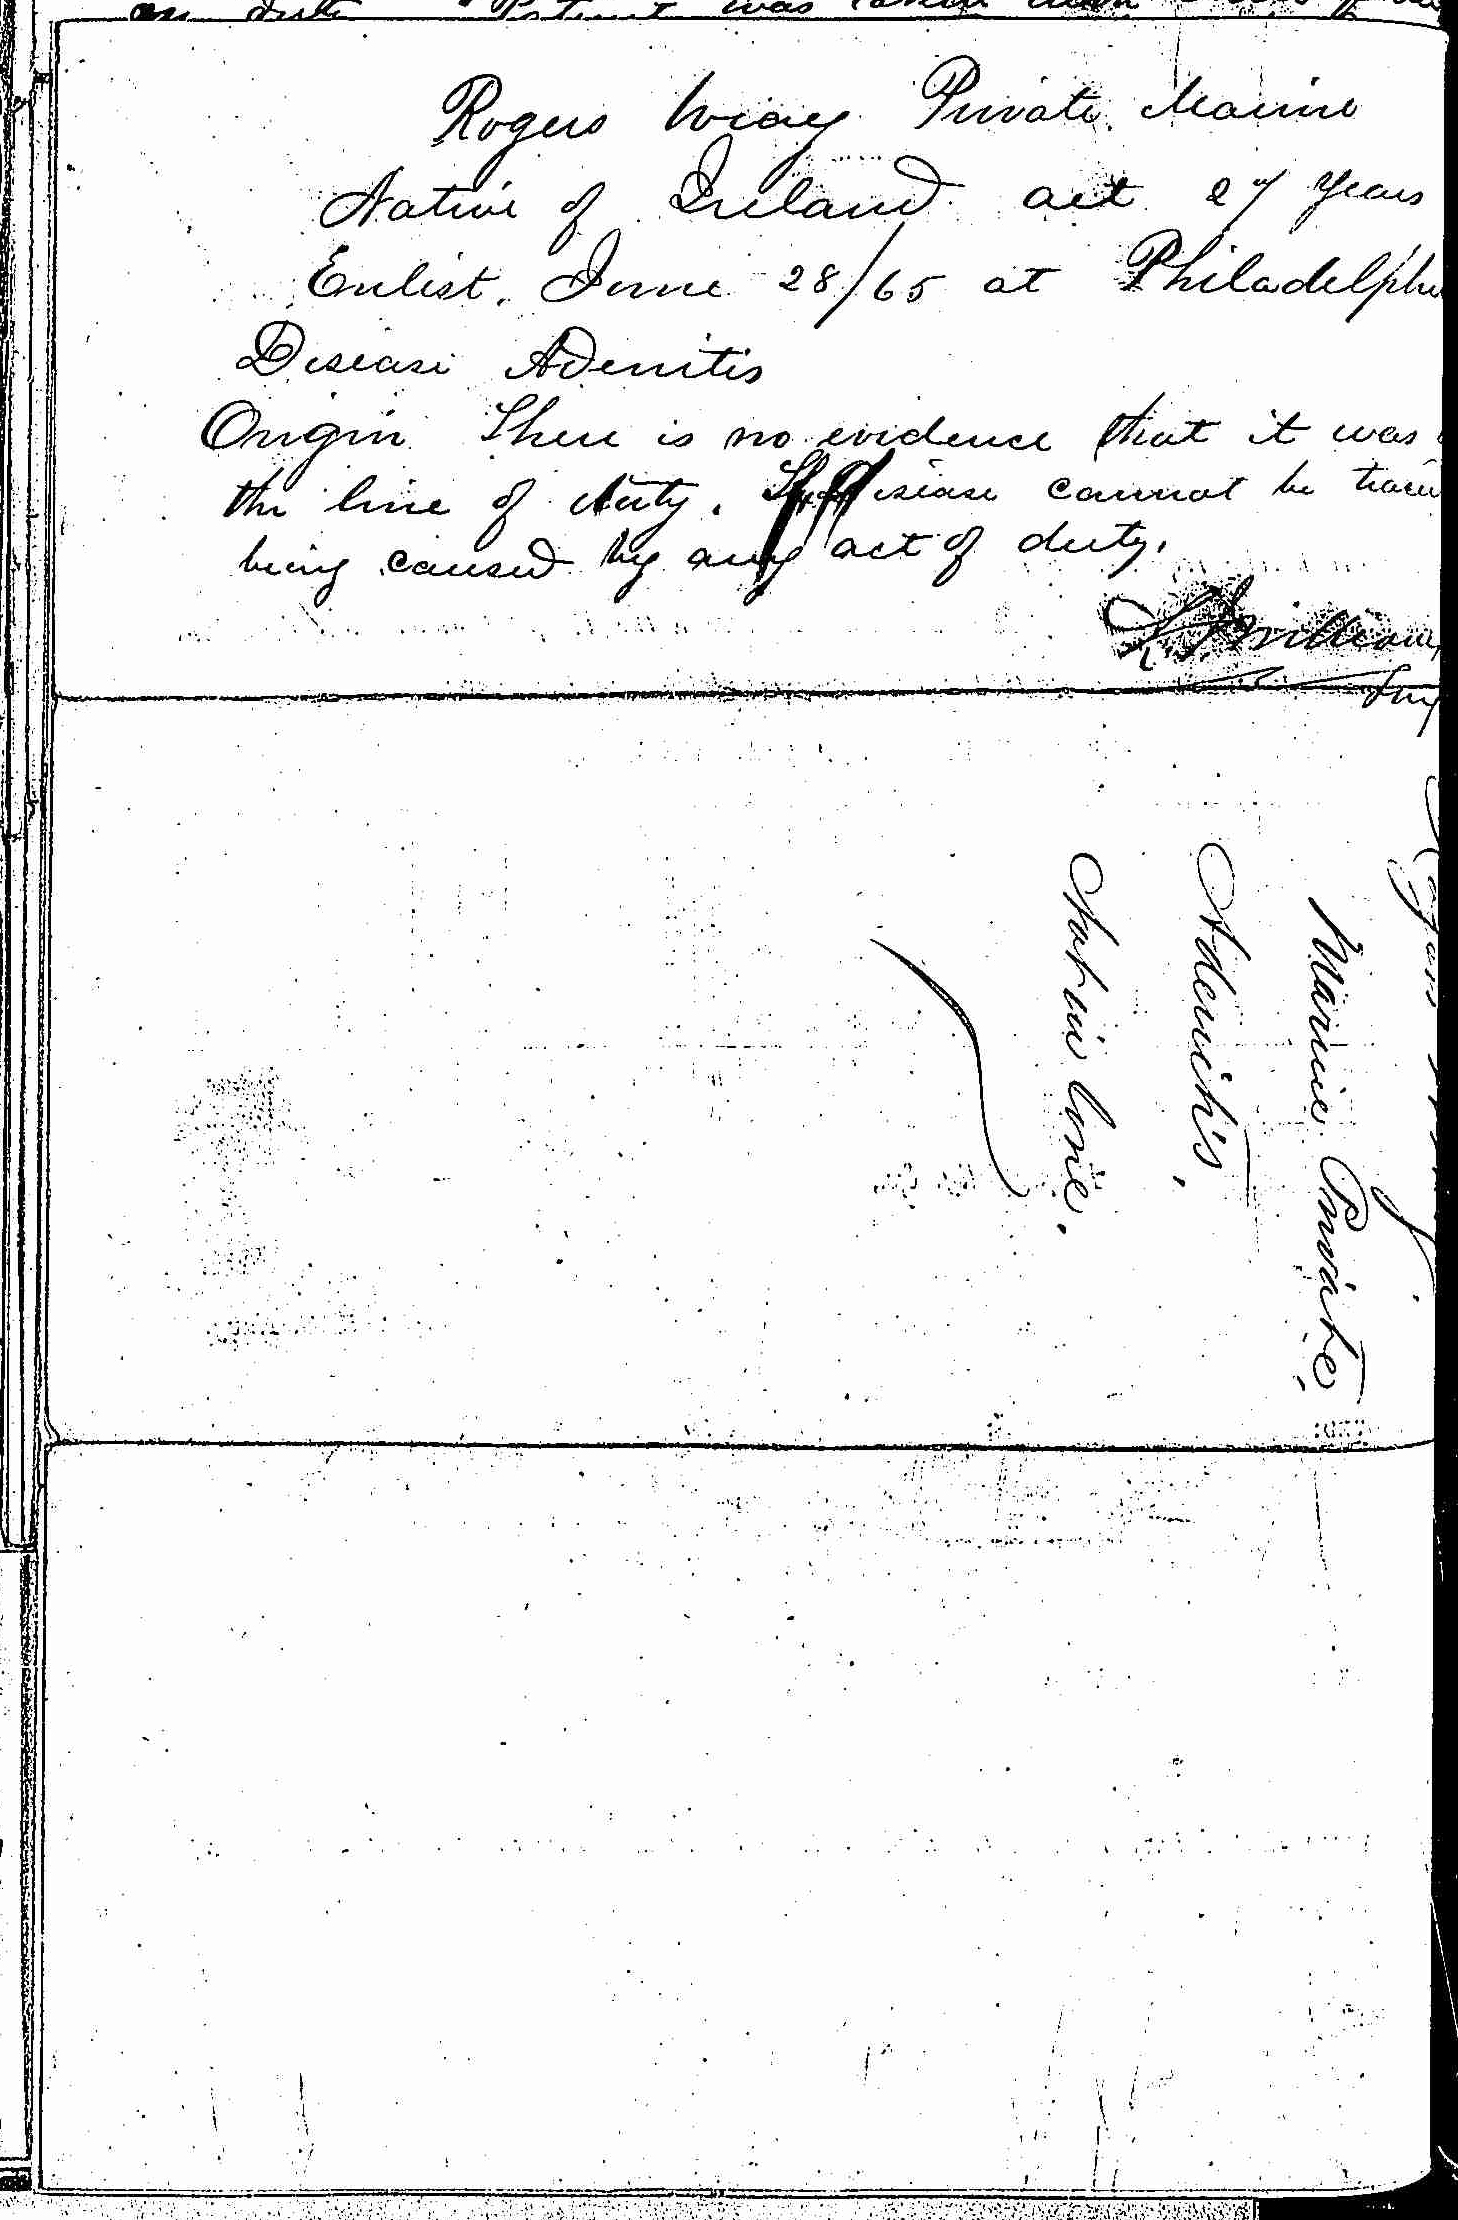 on duty Patient was taken
Rogers Wray Private Marine
Native of Ireland aet 27 Years
Enlist. June 28/65 at Philadelphi
Disease Adenitis
Origin There is no evidence that it was
the line of duty. The Disease cannot be trace
being caused by any act of duty.
Surg
Marine Private,
Adenitis,
Not in line.